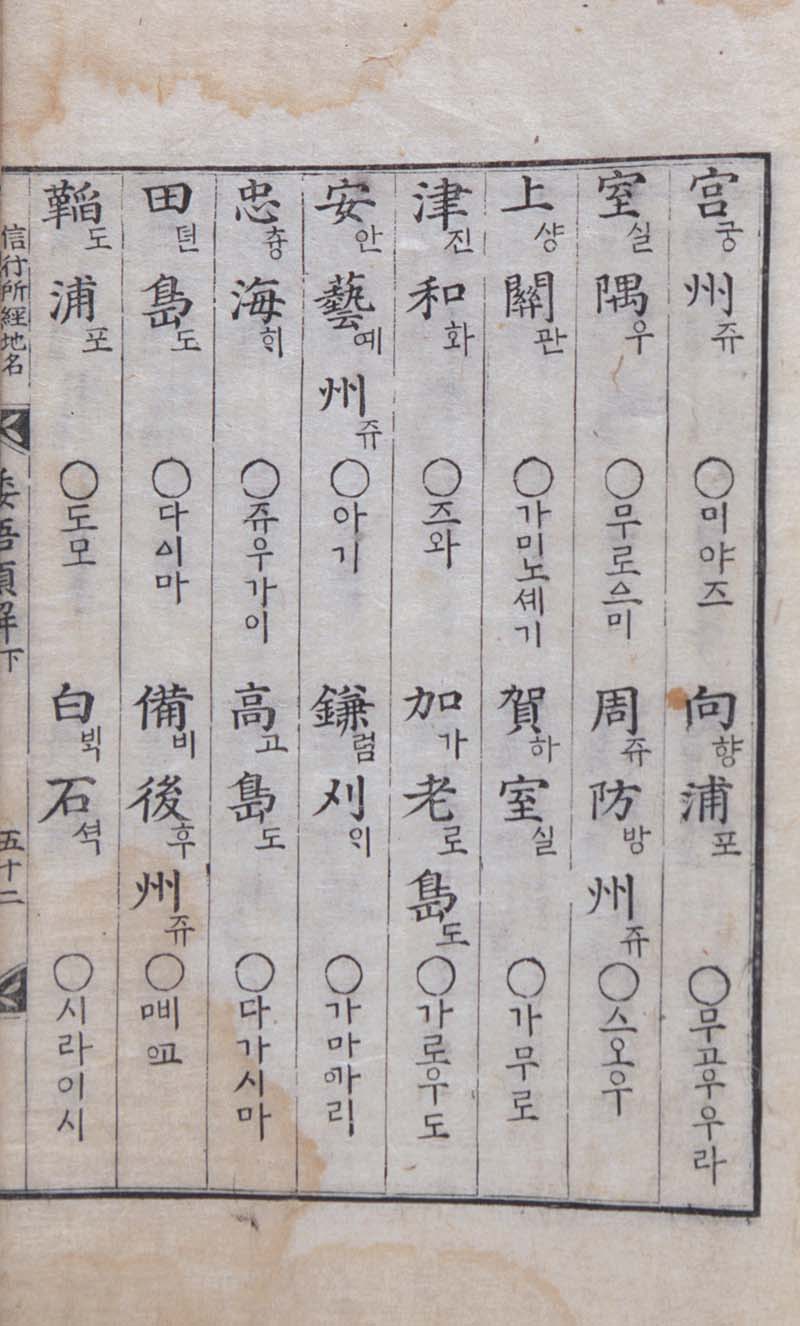 宮궁州쥬○미야즈 向향浦포○무고우우라
室실隅우○무로ᅀᅳ미 周쥬防방州쥬○스오우
上샹關관○가미노셰기 賀하室실○가무로
津진和화○즈와 加가老로島도○가로우도
安안藝예州쥬○아기 鎌렴刈ᄋᆡ○가마ᅌ가리
忠츙海ᄒᆡ○쥬우가이 高고島도○다가시마
田뎐島도○다ᅀᅵ마 備비後후州쥬○ㅁ비ᅌ고
鞱도浦포○도모 白ᄇᆡᆨ石셕○시라이시
信行所經地名 倭語類解下 五十二